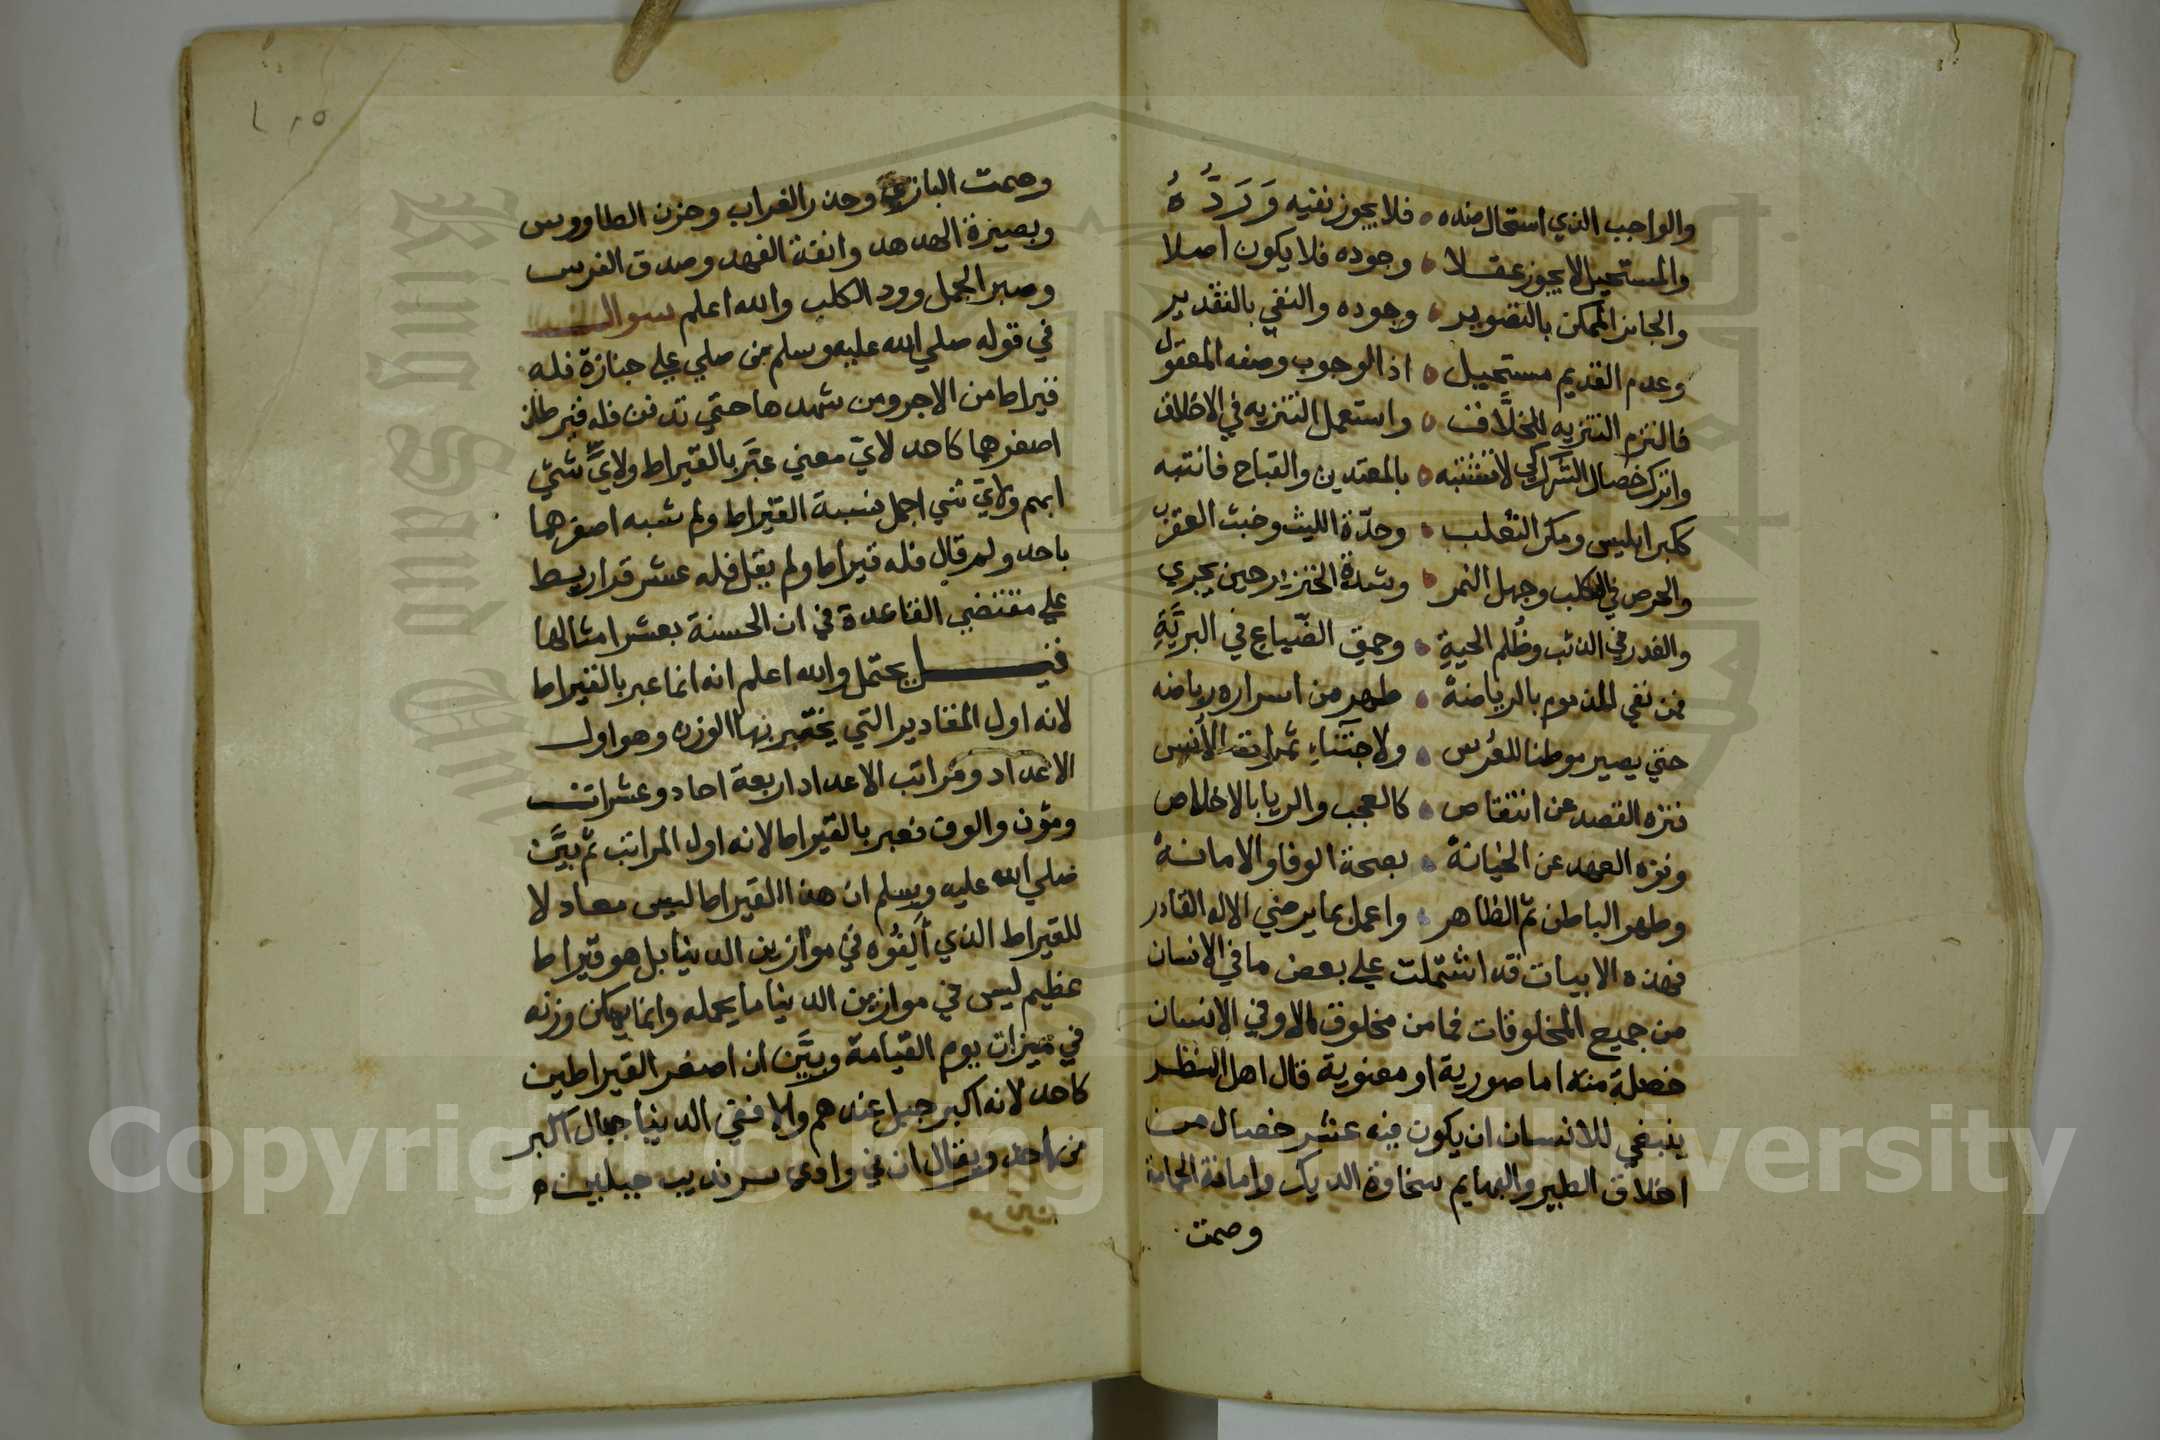 والواجب الذي استحال ضده ٥ فلا يجوز نفيه وَرَدُّهُ
والمستحيل لا يجوز عقلا ٥ وجوده فلا يكون اصلا
والجائز الممكن بالتصوير ٥ وجوده والنفي بالتقدير
وعدم القديم مستحيل ٥ اذ الوجوب وصفه المعقول
فالتزم التنزيه للخلّاق ٥ واستعمل التنزيه في الاخلاق
واترك خصال الشرك كي لا تشتبه ٥ بالمعتدين والقباح فانتبه
ككبر ابليس ومكر الثعلب ٥ وحدّة الليث وخبث العقرب
والحرص في الكلب وجهل النمر ٥ وشدة الخنزير حين يجري
والغدر في الذئب وظُلم الحيةِ ٥ وحمق الضّباع في البريَّةِ
فمن نفي المذموم بالرياضة ٥ طهر من اسراره رياضه
حتي يصير موطنا للغُرس ٥ ولاجتناءِ ثمرات الأُنس
نزه القصد عن انتقاص ٥ كالعجب والريا بالاخلاص
ونزه العهد عن الخيانة ٥ بصحة الوفا والامانة
وطهر الباطن ثم الظاهر ٥ واعمل بما يرضي الاله القادر
فهذه الابيات قد اشتملت علي بعض ما في الانسان
من جميع المخلوقات فما من مخلوق الا وفي الانسان
خصلة منه اما صورية او معنوية قال اهل النظر
ينبغي للانسان ان يكون فيه عشر خصال من
اخلاق الطير والبهايم سخاوة الديك وامانة الحمامة
وصمت
٢١٥
وصمت البازي وحذر الغراب وحزن الطاووس
وبصيرة الهدهد وانفة الفهد وصدق الفرس
وصبر الجمل وود الكلب والله اعلم سوال
في قوله صلي الله عليه وسلم من صلي علي جنازة فله
قيراط من الاجر ومن شهدها حتي تدفن فله قيرطان
اصغرهما كاحد لايّ معني عبَّر بالقيراط ولايّ شيّ
ابهم ولايّ شي اجمل نسبة القيراط ولم شبه اصغرهما
باحد ولم قال فله قيراط ولم يقل فله عشر قراريط
علي مقتضي القاعدة في ان الحسنة بعشر امثالها
قيل يحتمل والله اعلم انه انما عبر بالقيراط
لانه اول المقادير التي يختبر بها الوزن وهو اول
الاعداد ومراتب الاعداد اربعة احاد وعشرات
ومؤن والوف فعبر بالقيراط لانه اول المراتب ثم بيَّن
صلي الله عليه وسلم ان هذا القيراط ليس معادلا
للقيراط الذي أَلِفُوه في موازين الدنيا بل هو قيراط
عظيم ليس في موازين الدنيا ما يحمله وانما يمكن وزنه
في ميزان يوم القيامة وبيَّن ان اصغر القيراطين
كاحد لانه اكبر جبل عندهم والا ففي الدنيا جبال اكبر
من احد ويقال ان في وادي سرنديب جبلين ٥
Copyright © King Saud University
King Saud University